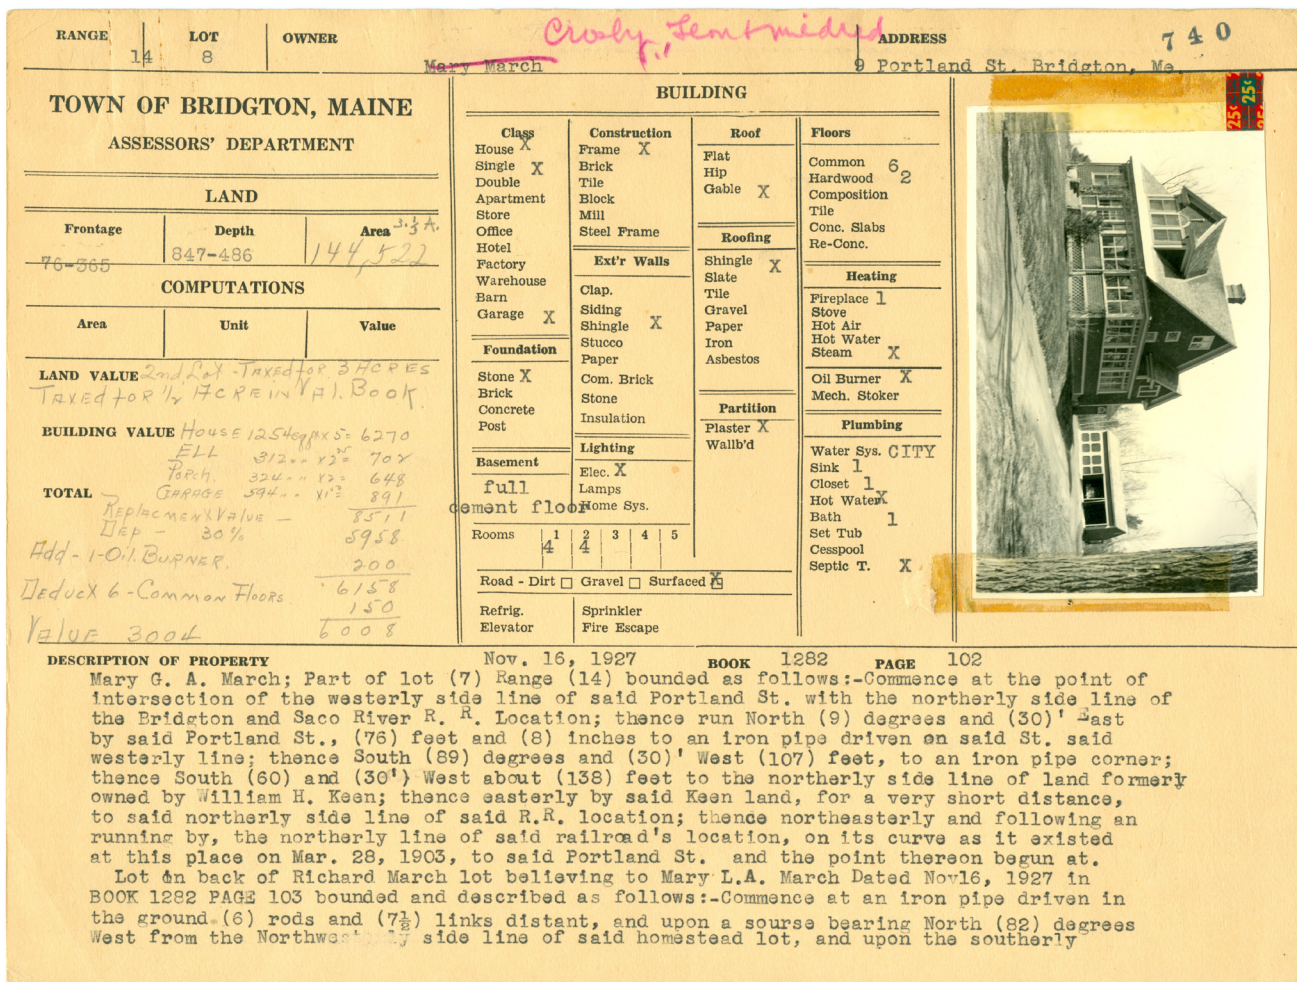 RANGE 14 LOT 8 OWNER Mary March Crosby, Leon & Mildred ADDRESS 9 Portland St. Bridgton, Me. 740
TOWN OF BRIDGTON, MAINE
ASSESSORS' DEPARTMENT
LAND
Frontage Depth Area 3.⅓ A.
76-365 847-486 144,522
COMPUTATIONS
Area Unit Value
LAND VALUE 2nd Lot - Taxed for 3 Acres
Taxed for 1/2 Acre in Val. Book.
BUILDING VALUE House 1254 sq ft x 5 = 6270
Ell 312 " " x 2 25 = 702
Porch. 324 " " x 2 = 648
TOTAL Garage 594 " " x 1 = 891
Replacment Value - 8511
Dep - 30% 5958
Add - 1 - Oil Burner. 200
6158
Deduct 6 - Common Floors 150
Value 3004 6008
BUILDING
Class
House X
Single X
Double
Apartment
Store
Office
Hotel
Factory
Warehouse
Barn
Garage X
Foundation
Stone X
Brick
Concrete
Post
Basement
full
cement floor
Construction
Frame X
Brick
Tile
Block
Mill
Steel Frame
Ext'r Walls
Clap.
Siding
Shingle X
Stucco
Paper
Com. Brick
Stone
Insulation
Lighting
Elec. X
Lamps
Home Sys.
Roof
Flat
Hip
Gable X
Roofing
Shingle X
Slate
Tile
Gravel
Paper
Iron
Asbestos
Partition
Plaster X
Wallb'd
Rooms 1 2 3 4 5
4 4
Road - Dirt Gravel Surfaced X
Refrig. Sprinkler
Elevator Fire Escape
Floors
Common 6
Hardwood 2
Composition
Tile
Conc. Slabs
Re-Conc.
Heating
Fireplace 1
Stove
Hot Air
Hot Water
Steam X
Oil Burner X
Mech. Stoker
Plumbing
Water Sys. CITY
Sink 1
Closet 1
Hot Water X
Bath 1
Set Tub
Cesspool
Septic T. X
25¢ 25¢ 25¢
DESCRIPTION OF PROPERTY Nov. 16, 1927 BOOK 1282 PAGE 102
Mary G. A. March; Part of lot (7) Range (14) bounded as follows:-Commence at the point of
intersection of the westerly side line of said Portland St. with the northerly side line of
the Bridgton and Saco River R. R. Location; thence run North (9) degrees and (30)' East
by said Portland St., (76) feet and (8) inches to an iron pipe driven on said St. said
westerly line; thence South (89) degrees and (30)' West (107) feet, to an iron pipe corner;
thence South (60) and (30') West about (138) feet to the northerly side line of land formerly
owned by William H. Keen; thence easterly by said Keen land, for a very short distance,
to said northerly side line of said R.R. location; thence northeasterly and following an
running by, the northerly line of said railroad's location, on its curve as it existed
at this place on Mar. 28, 1903, to said Portland St. and the point thereon begun at.
Lot on back of Richard March lot believing to Mary L.A. March Dated Nov16, 1927 in
BOOK 1282 PAGE 103 bounded and described as follows:-Commence at an iron pipe driven in
the ground (6) rods and (7½) links distant, and upon a sourse bearing North (82) degrees
West from the Northwesterly side line of said homestead lot, and upon the southerly